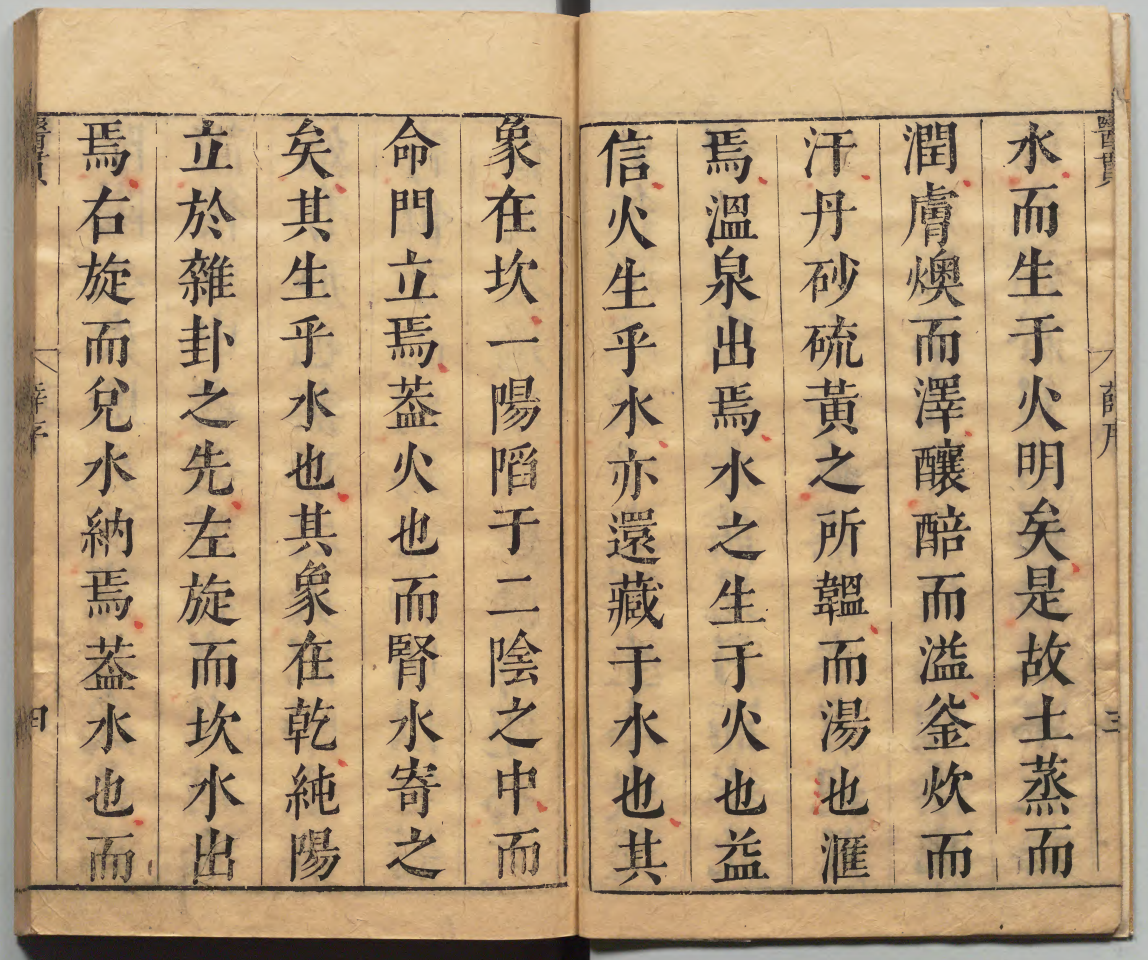 醫貫
薛序
三
水而生于火明矣是故土蒸而
潤膚燠而澤釀醅而溢釜炊而
汗丹砂硫黃之所韞而湯也滙
焉溫泉出焉水之生于火也益
信火生乎水亦還藏于水也其
象在坎一陽陷于二陰之中而
命門立焉葢火也而腎水寄之
矣其生乎水也其象在乾純陽
立於雜卦之先左旋而坎水出
焉右旋而兌水納焉葢水也而
醫貫
薛序
四